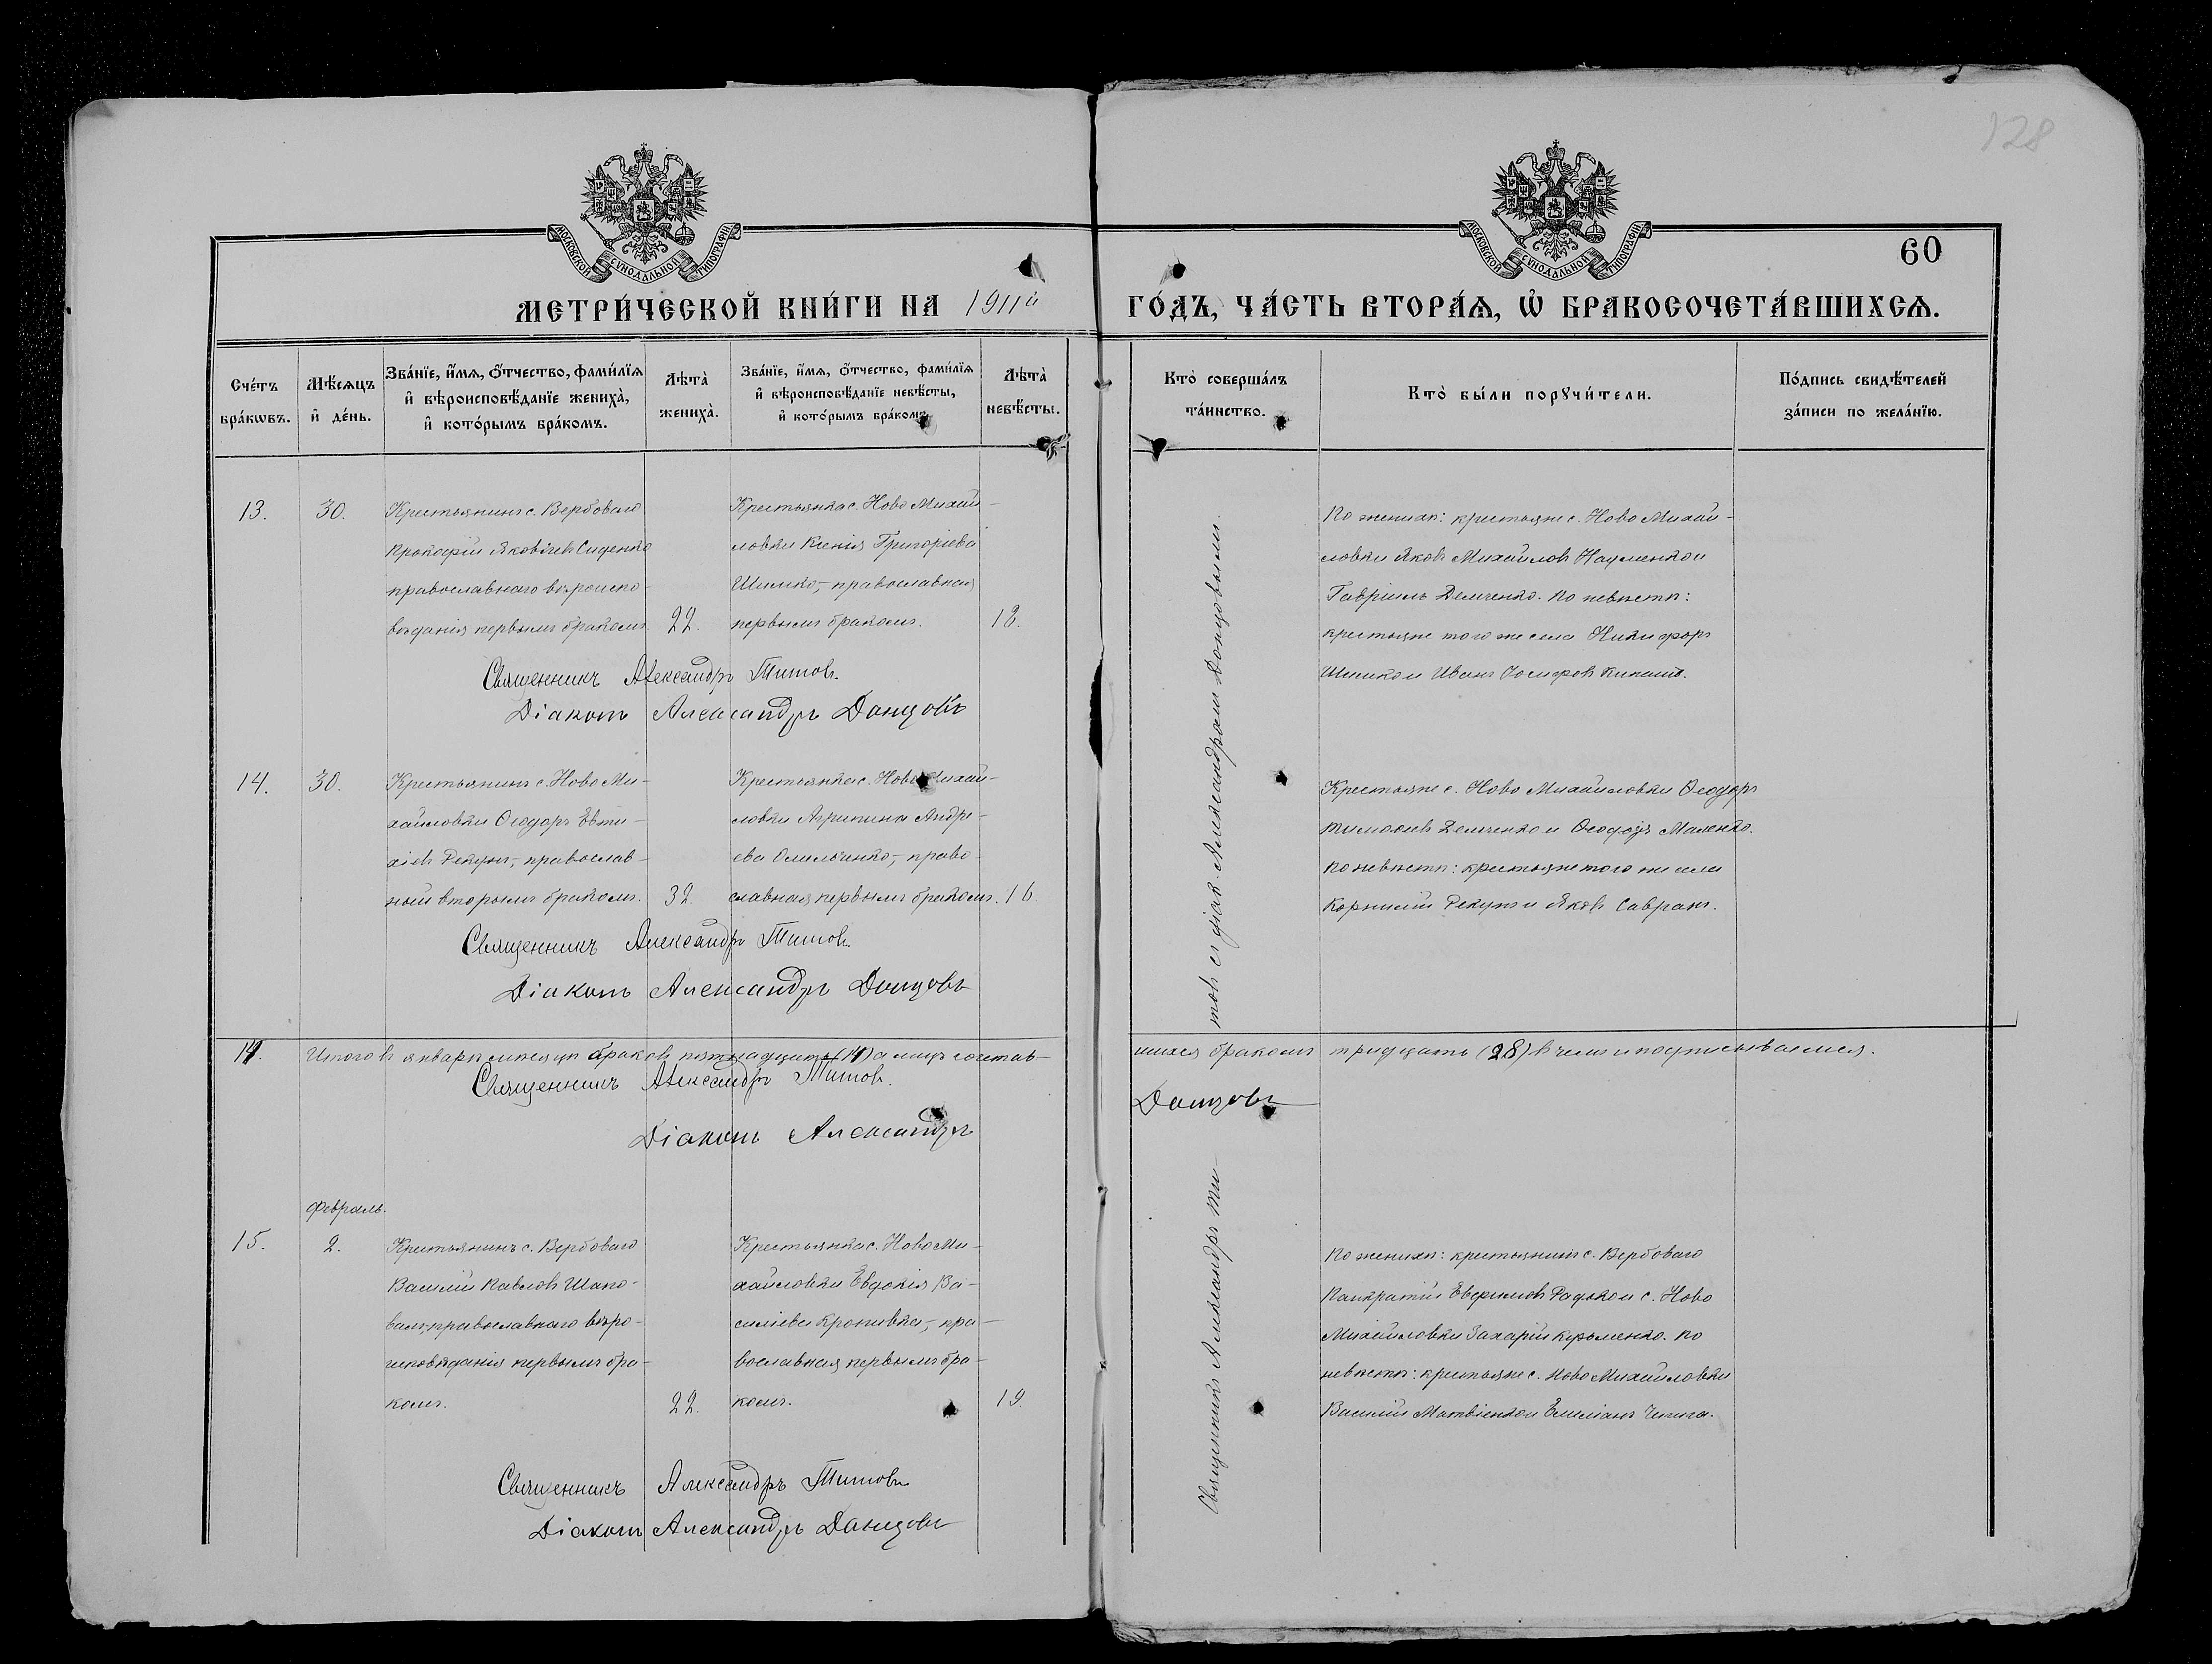 128
МОСКОВСКОЙ СѴНОДАЛЬНОЙ ТИПОГРАФІИ
МОСКОВСКОЙ СѴНОДАЛЬНОЙ ТИПОГРАФІИ
60
МЕТРИ́ЧЕСКОЙ КНИ́ГИ НА 1911й ГО́ДЪ, ЧА́СТЬ ВТОРА́Ѧ, Ѡ҆ БРАКОСОЧЕТА́ВШИХСѦ.
Сче́тъ бра́кѡвъ.
Мѣ́сѧцъ и҆ де́нь.
Зва́нїе, и҆́мѧ, ѻ҆́тчество, фами́лїѧ
и҆ вѣроисповѣ́данїе жениха̀,
и҆ кото́рымъ бра́комъ.
Лѣта̀ жениха̀.
Зва́нїе, и҆́мѧ, ѻ҆́тчество, фами́лїѧ
и҆ вѣроисповѣ́данїе невѣ́сты,
и҆ кото́рымъ бра́комъ.
Лѣта̀ невѣ́сты.
Кто̀ соверша́лъ
та́инство.
Кто̀ бы́ли порꙋчи́тели.
По́дпись свидѣ́телей
за́писи по жела́нїю.
13. 30.
Крестьянинъ с. Вербоваго
Прокофій Яковлевъ Сиденко
православнаго вѣроиспо-
вѣданія первымъ бракомъ. 22.
Крестьянка с. Ново Михай-
ловки Ксенія Григоріева
Шишко, православная
первымъ бракомъ. 18.
По женихѣ: крестьяне с. Ново Михай-
ловки Яковъ Михайловъ Науменко и
Гавріилъ Демченко. По невѣстѣ:
крестьяне того же села Никифоръ
Шишко и Иванъ Іосифовъ
Священникъ Александръ Титовъ.
Діаконъ Александръ Донцовъ
14. 30.
Крестьянинъ с. Ново Ми-
хайловки Ѳеодоръ Евти-
хіевъ Рекунъ, православ-
ный вторымъ бракомъ. 32
Крестьянка с. Ново Михай-
ловки Агрипина Андре-
ева Омельченко, право-
славная первымъ бракомъ. 16.
Крестьяне с. Ново Михайловки Ѳеодоръ
Тимоѳеевъ Демченко и Ѳеодоръ Маленко.
По невѣстѣ: крестьяне того же села
Корнилій Рекунъ и Яковъ Савранъ.
Священникъ Александръ Титовъ.
Діаконъ Александръ Донцовъ
14. Итого въ январѣ мѣсяцѣ браковъ пятнадцать (14) а лицъ сочетав-
шихся бракомъ тридцать (28) въ чемъ и подписываемся.
Священникъ Александръ Титовъ.
Діаконъ Александръ Донцовъ
Февраль.
15. 2.
Крестьянинъ с. Вербоваго
Василій Павловъ Шапо-
валъ, православнаго вѣро-
исповѣданія первымъ бра-
комъ. 22.
Крестьянка с. Ново Ми-
хайловки Евдокія Ва-
силіева Кропивка, пра-
вославная первымъ бра-
комъ. 19.
Священникъ Александръ Ти-
товъ съ діак. Александромъ Донцовымъ.
По женихѣ: крестьянинъ с. Вербоваго
Панкратій Евфимовъ Радько и с. Ново
Михайловки Захарій Кузьменко. По
невѣстѣ: крестьяне с. Ново Михайловки
Василій Матвіенко и Емиліанъ Чепига.
Священникъ Александръ Титовъ
Діаконъ Александръ Донцовъ